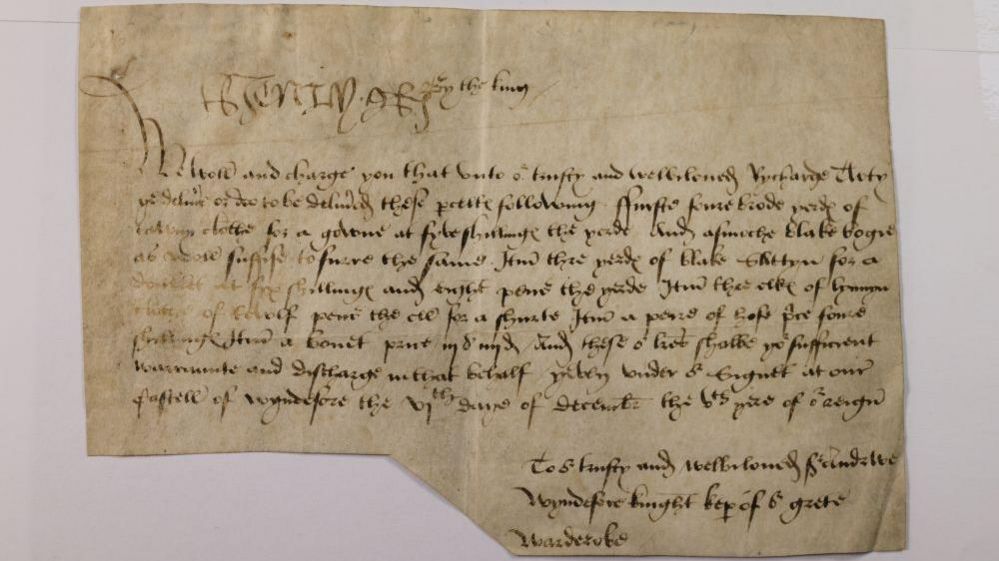 HENRY R By the king
We woll and charge you that unto oʳ trusty and welbiloved Rycharde
ye delivʳ or doo to be delivʳed these pcells following ffurste foure brode yerds of
tawny clothe for a gowne at fyve shillings the yerde And asmoche blake bogie
as woll suffise to furre the same Itm thre yerds of blake Sattyn for a
doublet at syx shillings and eight pens the yerde Itm thre elles of lynnyn
clothe of twelf pens the ell for a shurte Itm a peire of hose price foure
shillings Itm a bonet price iijs iiijd And these oʳ lres shalbe yoʳ sufficient
warraunte and discharge in that behalf yeven under oʳ Signet at our
Castell of Wyndesore the vjᵗʰ daye of decembr the vᵗʰ yere of oʳ reign
To oʳ trusty and welbiloved Sʳ Andrewe
Wyndesore knight kepʳ of oʳ grete
warderobe